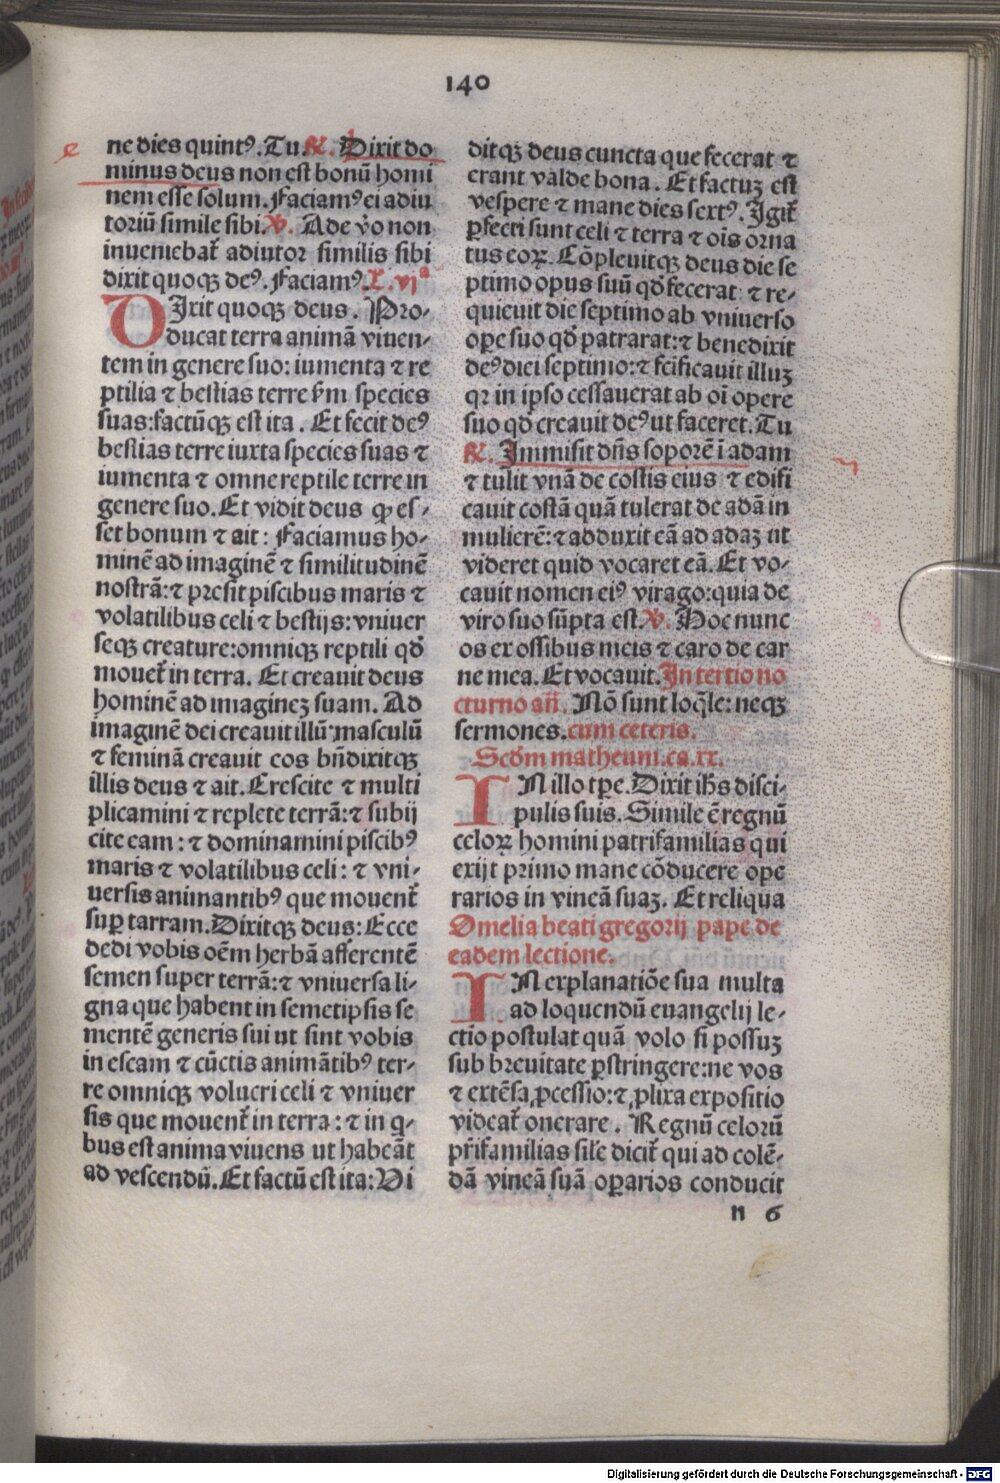 140
e
ne dies quintꝰ. Tu. ℟. Dixit do
minus deus non est bonū homi
nem esse solum. Faciamꝰ ei adiu
toriū simile sibi. ℣. Ade v̊o non
inueniebat᷑ adiutor similis sibi
dixit quoqꝫ deꝰ. Faciamꝰ. L. vjᵃ
DIxit quoqꝫ deus. Pro-
ducat terra animā viuen-
tem in genere suo: iumenta ⁊ re
ptilia ⁊ bestias terre ẜm species
suas: factūqꝫ est ita. Et fecit deꝰ
bestias terre iuxta species suas ⁊
iumenta ⁊ omne reptile terre in
genere suo. Et vidit deus ꝙ es-
set bonum ⁊ ait: Faciamus ho-
minē ad imaginē ⁊ similitudinē
nostrā: ⁊ presit piscibus maris ⁊
volatilibus celi ⁊ bestijs: vniuer
seqꝫ creature: omniqꝫ reptili qd̛
mouet᷑ in terra. Et creauit deus
hominē ad imagineꝫ suam. Ad
imaginē dei creauit illū: masculū
⁊ feminā creauit eos bn̄dixitqꝫ
illis deus ⁊ ait. Crescite ⁊ multi
plicamini ⁊ replete terrā: ⁊ subij
cite eam: ⁊ dominamini piscibꝰ
maris ⁊ volatilibus celi: ⁊ vni-
uersis animantibꝰ que mouent᷑
suꝑ tarram. Dixitqꝫ deus: Ecce
dedi vobis oēm herbā afferentē
semen super terrā: ⁊ vniuersa li-
gna que habent in semetipsis se
mentē generis sui ut sint vobis
in escam ⁊ cūctis animātibꝰ ter-
re omniqꝫ volucri celi ⁊ vniuer
sis que mouent᷑ in terra: ⁊ in q̇-
bus est anima viuens ut habeāt
ad vescendū. Et factū est ita: Vi
ditqꝫ deus cuncta que fecerat ⁊
erant valde bona. Et factuꝫ est
vespere ⁊ mane dies sextꝰ. Igit᷑
ꝑfecti sunt celi ⁊ terra ⁊ oīs orna
tus eoꝝ. Cōpleuitqꝫ deus die se
ptimo opus suū qd̛ fecerat ⁊ re-
quieuit die septimo ab vniuerso
oꝑe suo qd̛ patrarat: ⁊ benedixit
deꝰ diei septimo: ⁊ scīficauit illuꝫ
qꝛ in ipso cessauerat ab oī opere
suo qd̛ creauit deꝰ ut faceret. Tu
℟. Immisit dn̄s soporē ī adam
⁊ tulit vnā de costis eius ⁊ edifi
cauit costā quā tulerat de adā in
mulierē: ⁊ adduxit eā ad adaꝫ ut
videret quid vocaret eā. Et vo-
cauit nomen eiꝰ virago: quia de
viro suo sūpta est. ℣. Hoc nunc
os ex ossibus meis ⁊ caro de car
ne mea. Et vocauit. In tertio no
cturno an̄. Nō sunt loq̄le: neqꝫ
sermones. cum ceteris.
Scd̛m matheum. ca. xx.
IN illo tꝑe. Dixit ih̄s disci-
pulis suis. Simile ē regnū
celoꝝ homini patrifamilias qui
exijt primo mane cōducere oꝑe
rarios in vineā suaꝫ. Et reliqua
Omelia beati gregorij pape de
eadem lectione.
IN explanatiōe sua multa
ad loquendū euangelij le-
ctio postulat quā volo si possuꝫ
sub breuitate ꝑstringere: ne vos
⁊ extēsa ꝓcessio: ⁊ ꝓlixa expositio
videat᷑ onerare. Regnū celorū
pr̄ifamilias sile̛ dicit᷑ qui ad colē-
dā vineā suā oꝑarios conducit
n 6
Digitalisierung gefördert durch die Deutsche Forschungsgemeinschaft - DFG